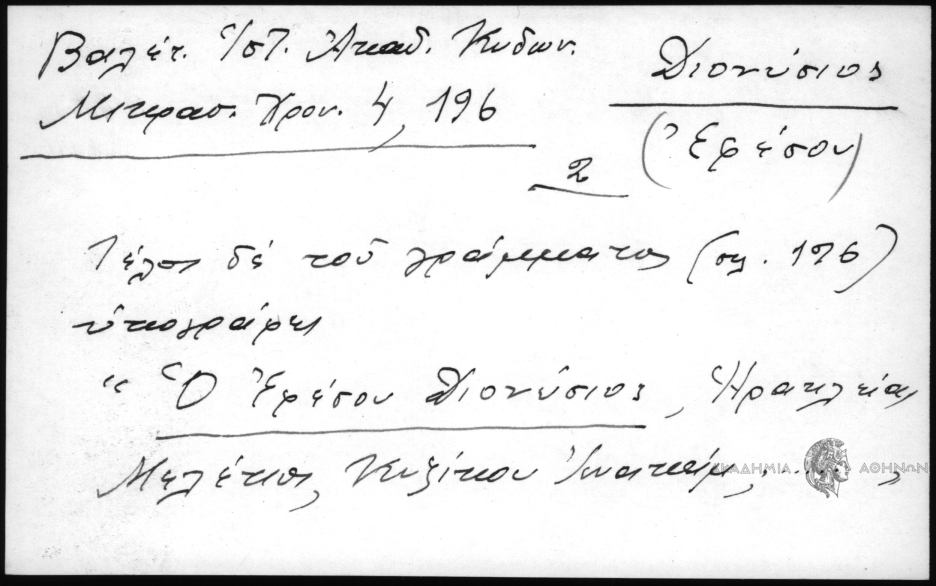 Βαλέτ. Ἱστ. Ἀκαδ. Κυδων.
Μικρασ. Χρον. 4, 196
Διονύσιος
(Ἐφέσου)
2
Τέλος δὲ τοῦ γράμματος (σελ. 196)
ὑπογράφει
“ Ὁ Ἐφέσου Διονύσιος, Ἡρακλείας
Μελέτιος, Κυζίκου Ἰωακείμ, .....,
ΑΚΑΔΗΜΙΑ ΑΘΗΝΩΝ